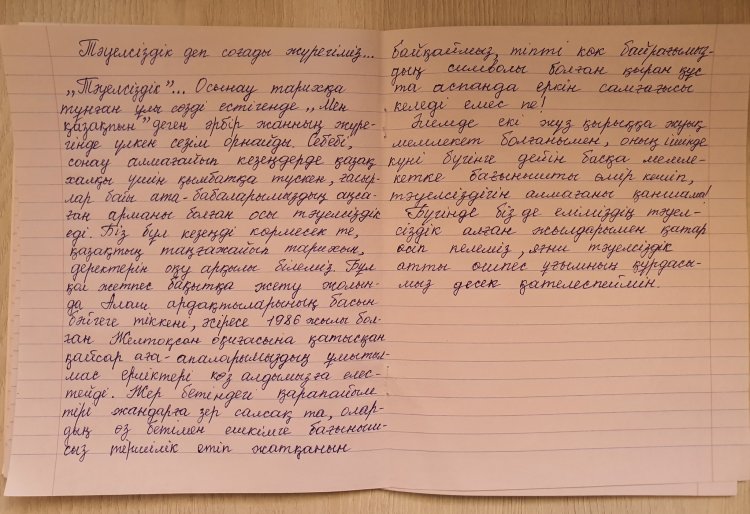 Тәуелсіздік деп соғады жүрегіміз...
„Тәуелсіздік"... Осынау тарихқа
тұнған ұлы сөзді естігенде „Мен
қазақпын" деген әрбір жанның жүре-
гінде үлкен сезім орнайды. Себебі,
сонау алмағайып кезеңдерде қазақ
халқы үшін қымбатқа түскен, ғасыр-
лар бойы ата-бабаларымыздың аңса-
ған арманы болған осы тәуелсіздік
еді. Біз бұл кезеңді көрмесек те,
қазақтың таңғажайып тарихын,
деректерін оқу арқылы білеміз. Бұл
қол жетпес бақытқа жету жолын-
да Алаш ардақтыларының басын
бәйгеге тіккені, әсіресе 1986 жылы бол-
ған Желтоқсан оқиғасына қатысқан
қайсар аға-апаларымыздың ұмытыл-
мас ерліктері көз алдымызға елес-
тейді. Жер бетіндегі қарапайым
тірі жандарға зер салсақ та, олар-
дың өз бетімен ешкімге бағыныш-
сыз тіршілік етіп жатқанын
байқаймыз, тіпті көк байрағымыз-
дың символы болған қыран құс
та аспанда еркін самғағысы
келеді емес пе!
Әлемде екі жүз қырыққа жуық
мемлекет болғанымен, оның ішінде
күні бүгінге дейін басқа мемле-
кетке бағынышты өмір кешіп,
тәуелсіздігін алмағаны қаншама!
Бүгінде біз де еліміздің тәуел-
сіздік алған жылдарымен қатар
өсіп келеміз, яғни тәуелсіздік
атты өшпес ұғымның құрдасы-
мыз десек қателеспеймін.